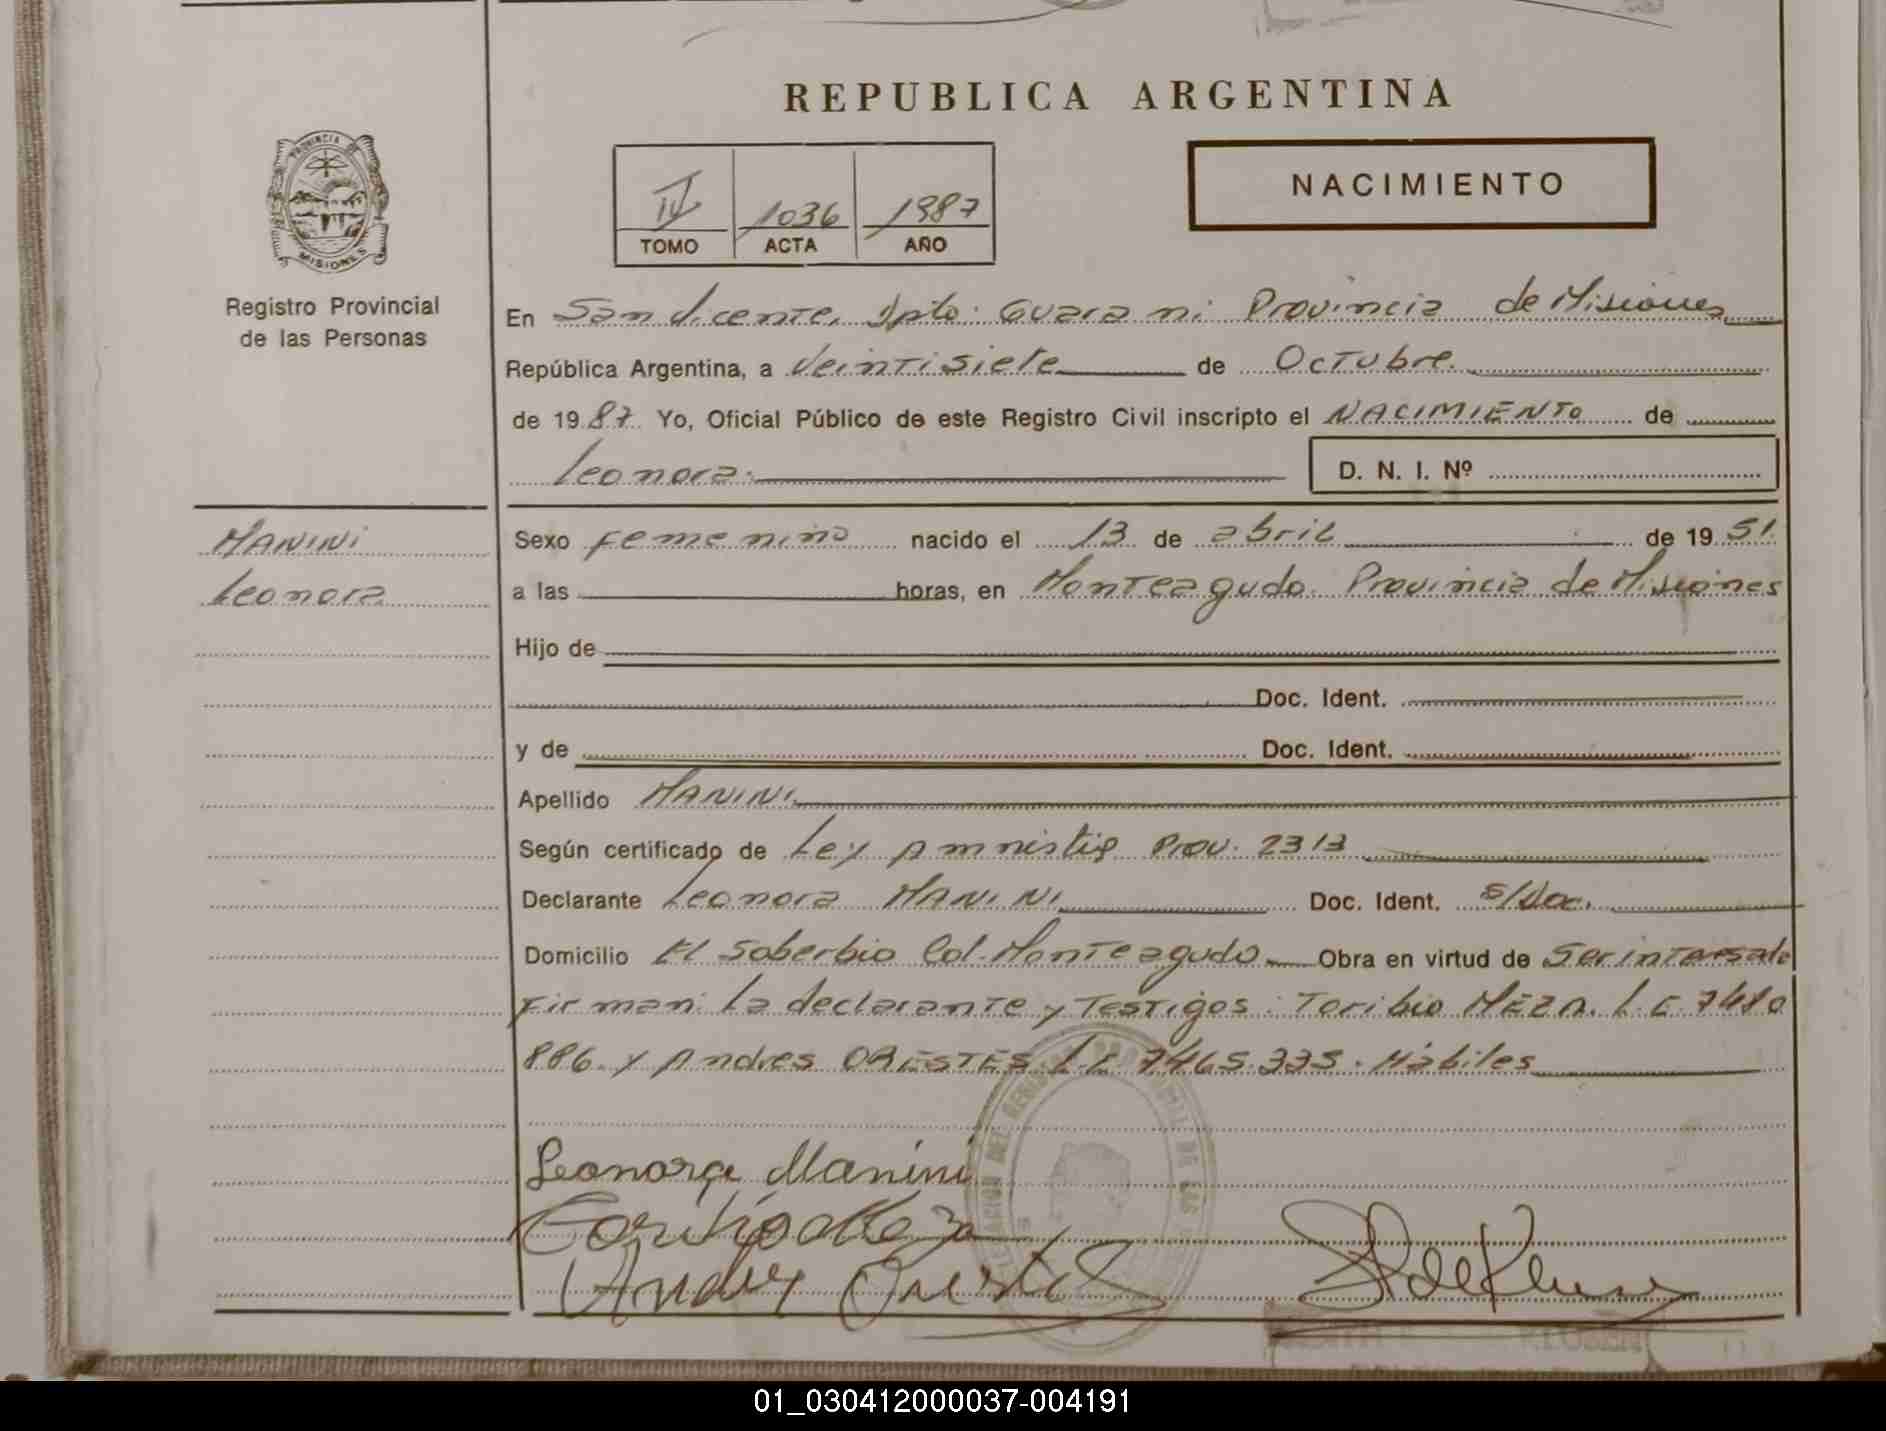 REPUBLICA ARGENTINA
NACIMIENTO
IV 1036 1987
TOMO ACTA AÑO
PROVINCIA DE
MISIONES
Registro Provincial
de las Personas
En San Vicente, Dpto: Guarani Provincia de Misiones
República Argentina, a Veintisiete de Octubre.
de 1987 Yo, Oficial Público de este Registro Civil inscripto el NACIMIENTO de
Leonora. D. N. I. Nº
MANINI
Leonora
Sexo femenino nacido el 13 de abril de 1951
a las horas, en Monteagudo Provincia de Misiones
Hijo de
Doc. Ident.
y de Doc. Ident.
Apellido MANINI
Según certificado de Ley Amnistia Prov. 2313
Declarante Leonora MANINI Doc. Ident. S/Doc.
Domicilio El Soberbio Col. Monteagudo Obra en virtud de Ser interesada
Firman: La declarante y Testigos: Toribio MEZA. L.E 7480
886 y Andres ORESTES L.E 7465.335. Hábiles
Leonora Manini
Toribio Meza
Andres Orestes
01_030412000037-004191